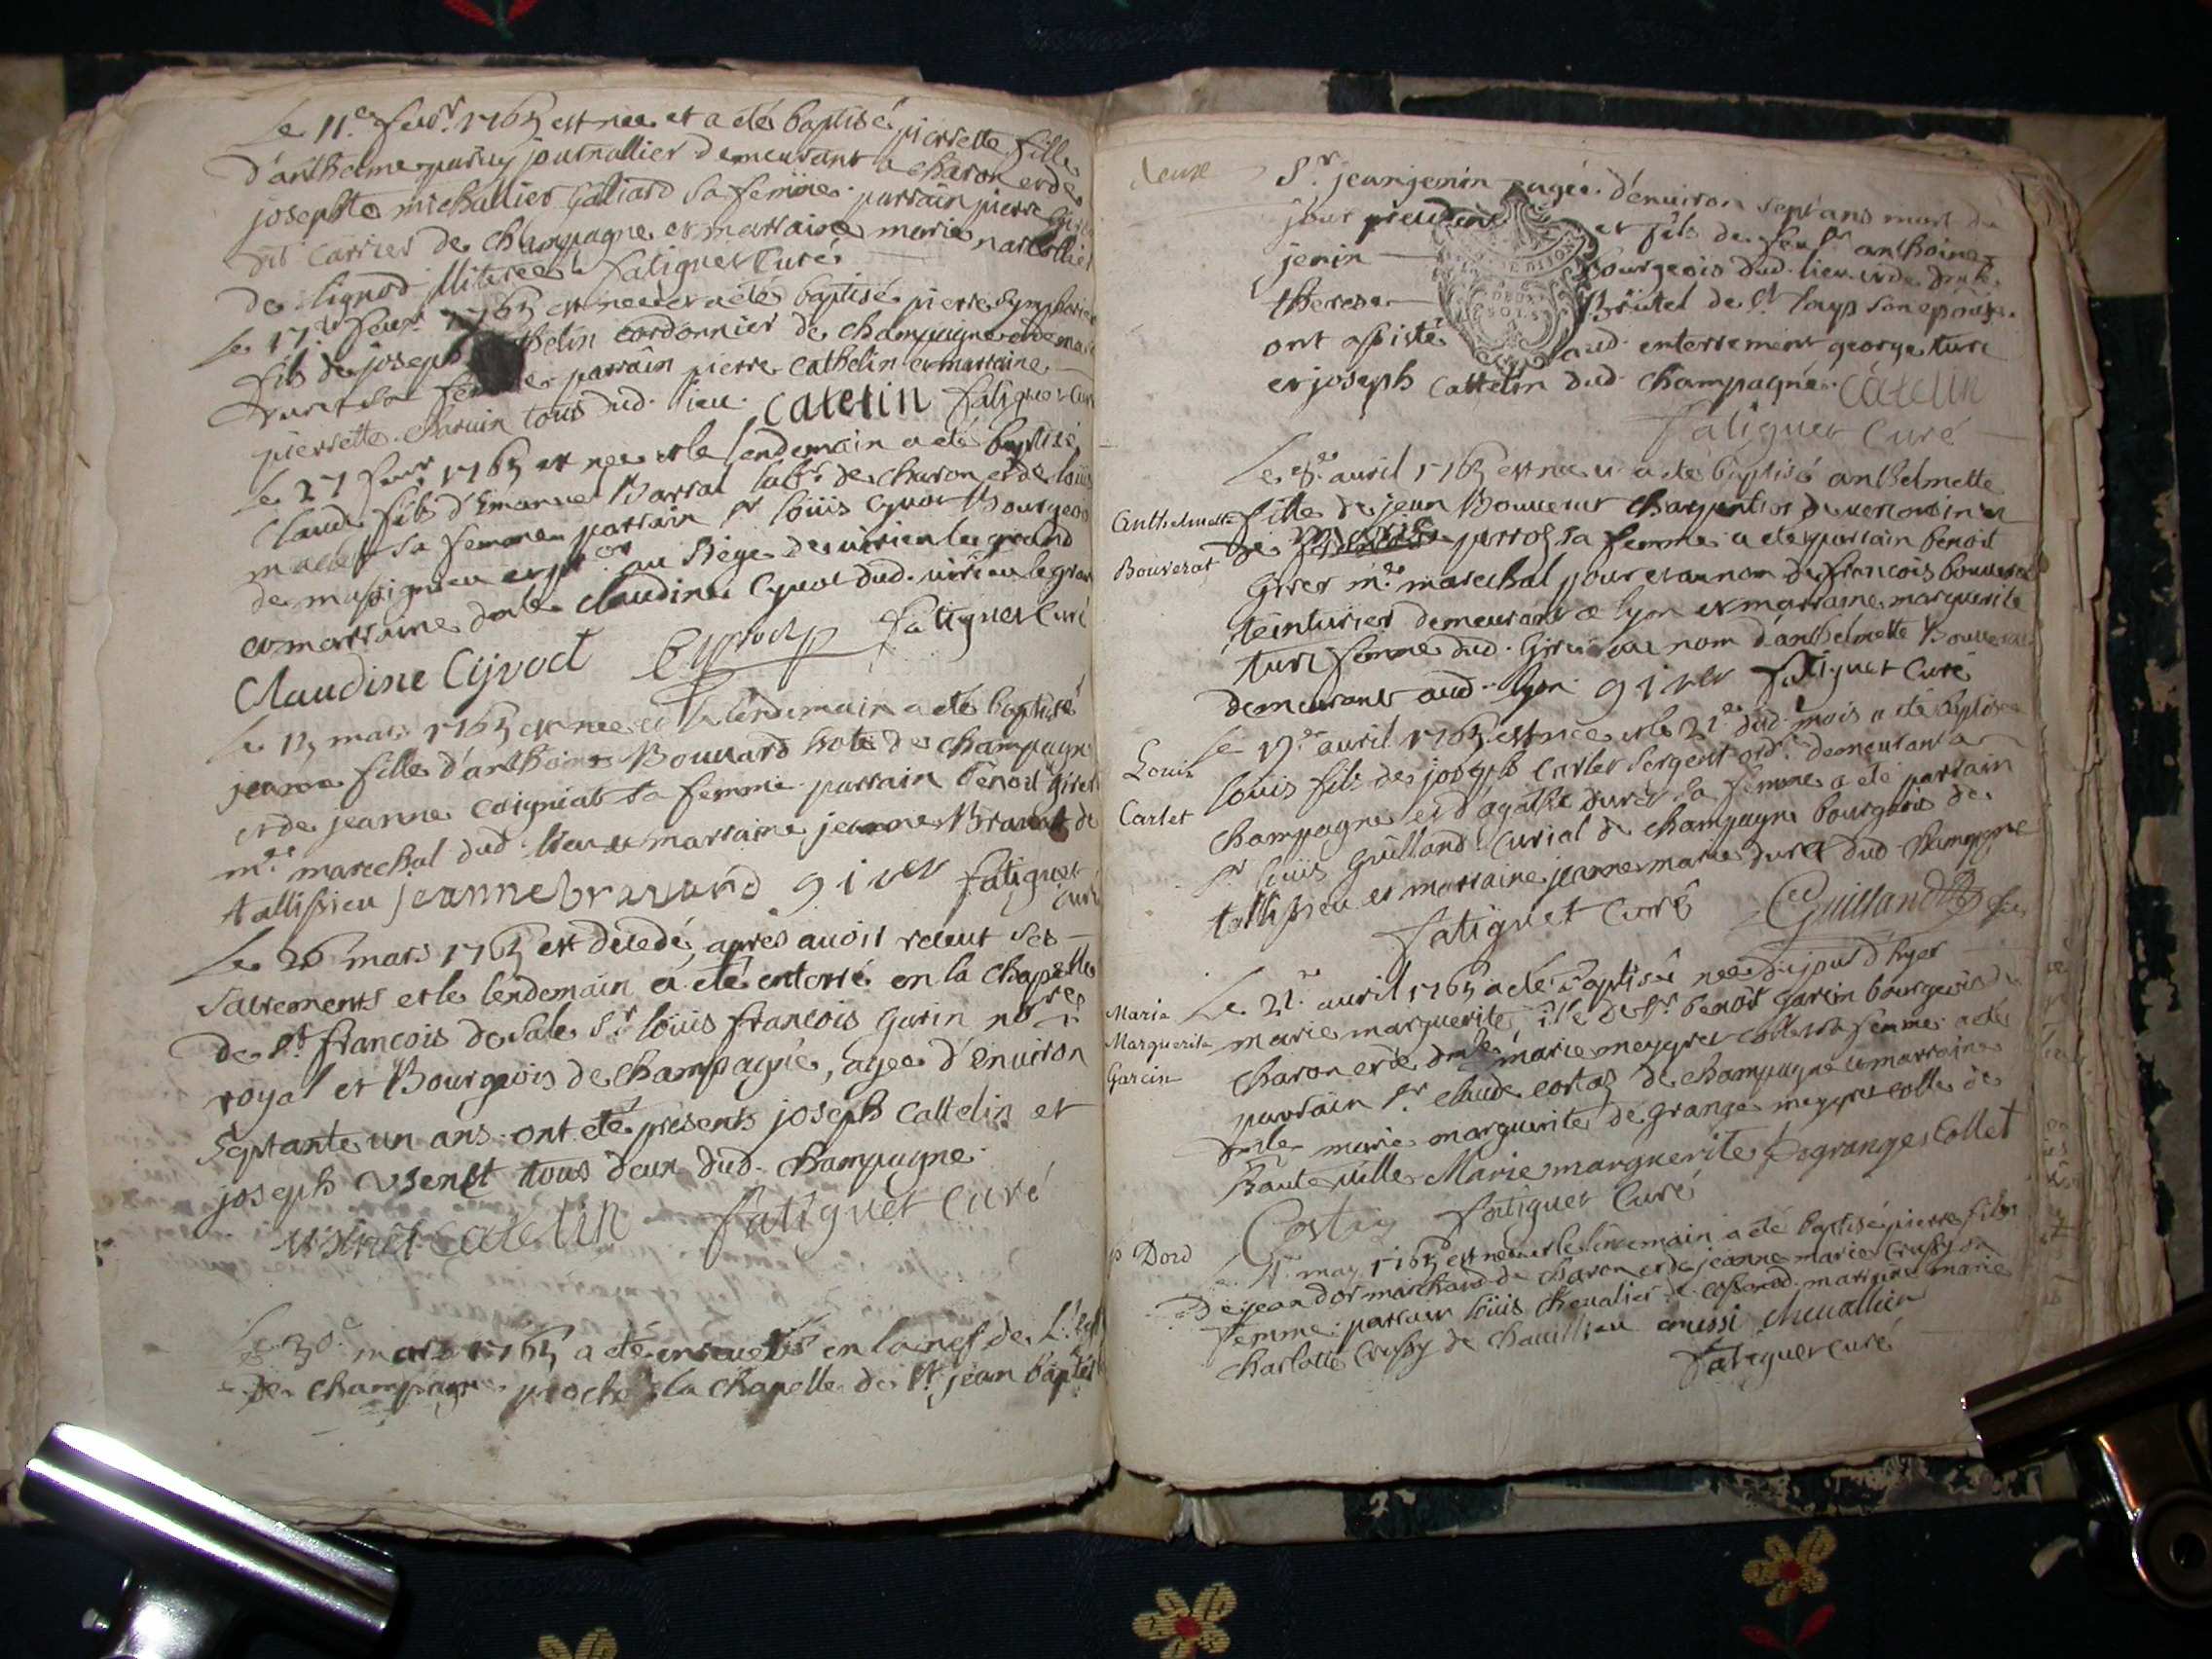 Le 11.e feur. 1765 est nee et a eté baptisé pierrette fille
d'anthelme journallier demeurant a charon et de
josephte michallier galliard sa femme. parrain pierre
dit carrier de champagne et marraine marie
de lignod illiteree fatiguet Curé
Le 17.e feur. 1765 est nee et a eté baptisé pierre symphorien
fils de joseph cordonnier de champagne et de
sa femme parrain pierre cathelin et marraine
pierrette charuin tous dud. lieu. catelin fatiguet
Le 27 feur 1765 est nee et le lendemain a eté baptisé
Claude fils d'Emanuel Barral labr. de charon et de
sa femme parrain Sr louis Cyvoct Bourgeois
de massignieu et au siege de virieu le grand
et marraine dlle claudine Cyvoct dud. virieu le grand
Claudine Cyvoct Cyvoct fatiguet Curé
Le 15 mars 1765 est nee et le lendemain a eté baptisé
jeanne fille d'anthoine Bouvard hote de champagne
et de jeanne coigniat sa femme parrain benoit
m.e marechal dud. lieu et marraine jeanne Bravard de
tallissieu jeanne bravard girer fatiguet
curé
Le 26 mars 1765 est decedé, apres auoir receut ses
sacrements et le lendemain a eté enterré en la chapelle
de St francois de Sale Sr louis francois Garin nore
royal et Bourgeois de champagne, agee d'enuiron
Septante un ans. ont eté presents joseph cattelin et
joseph usenet tous deux dud. champagne
usenet catelin fatiguet Curé
Le 30.e mars 1765 a eté enseueli en la nef de L'
de champagne proche la chapelle de St jean baptis
deuze
Sr. jean jenin agée d'enuiron sept ans mort du
jour precedent et fils de feu Sr anthoine
jenin Bourgeois dud. lieu et de dmlle
therese Brütel de St. loup son epouse.
ont assisté aud. enterrement george ture
et joseph cattelin dud. champagne. catelin
fatiguet Curé
Le avril 1765 est nee et a eté baptisé anthelmette
Anthelmette
Bouverat
fille de jean Bouverat charpentier de
de perroz sa femme a eté parrain benoit
Girer m.e marechal pour et au nom de francois bouverat
teinturier demeurant a lyon et marraine marguerite
ture femme dud. Girer au nom d'anthelmette Bouverat
demeurant aud. lyon girer fatiguet Curé
Le 19.e auril 1765 est nee et le 21.e dud. mois a eté baptisé
Louis
Carlet
louis fils de joseph Carlet Sergent ord.e demeurant a
champagne et d'agathe duret sa femme a eté parrain
Sr louis Guilland Curial de champagne bourgeois de
tallissieu et marraine jeanne marie duret dud. champagne
fatiguet Curé Guilland
Le 21.e auril 1765 a eté baptisé nee du jour d'hyer
Marie
Marguerite
Garcin
marie marguerite fille de Sr. benoit garcin bourgeois de
charon et de dmlle marie meygret collet sa femme a eté
parrain Sr claude costaz de champagne et marraine
dmlle marie marguerite de grange meygret collet de
haute ville Marie marguerite Degranges Collet
Costaz fatiguet Curé
p Dord
Le may 1765 est nee et le lendemain a eté baptisé pierre fils
de jean dor marchand de charon et de jeanne marie Crussy sa
femme parrain louis cheualier marraine marie
charlotte Crussy de chavillieu crussi cheuallier
fatiguet curé